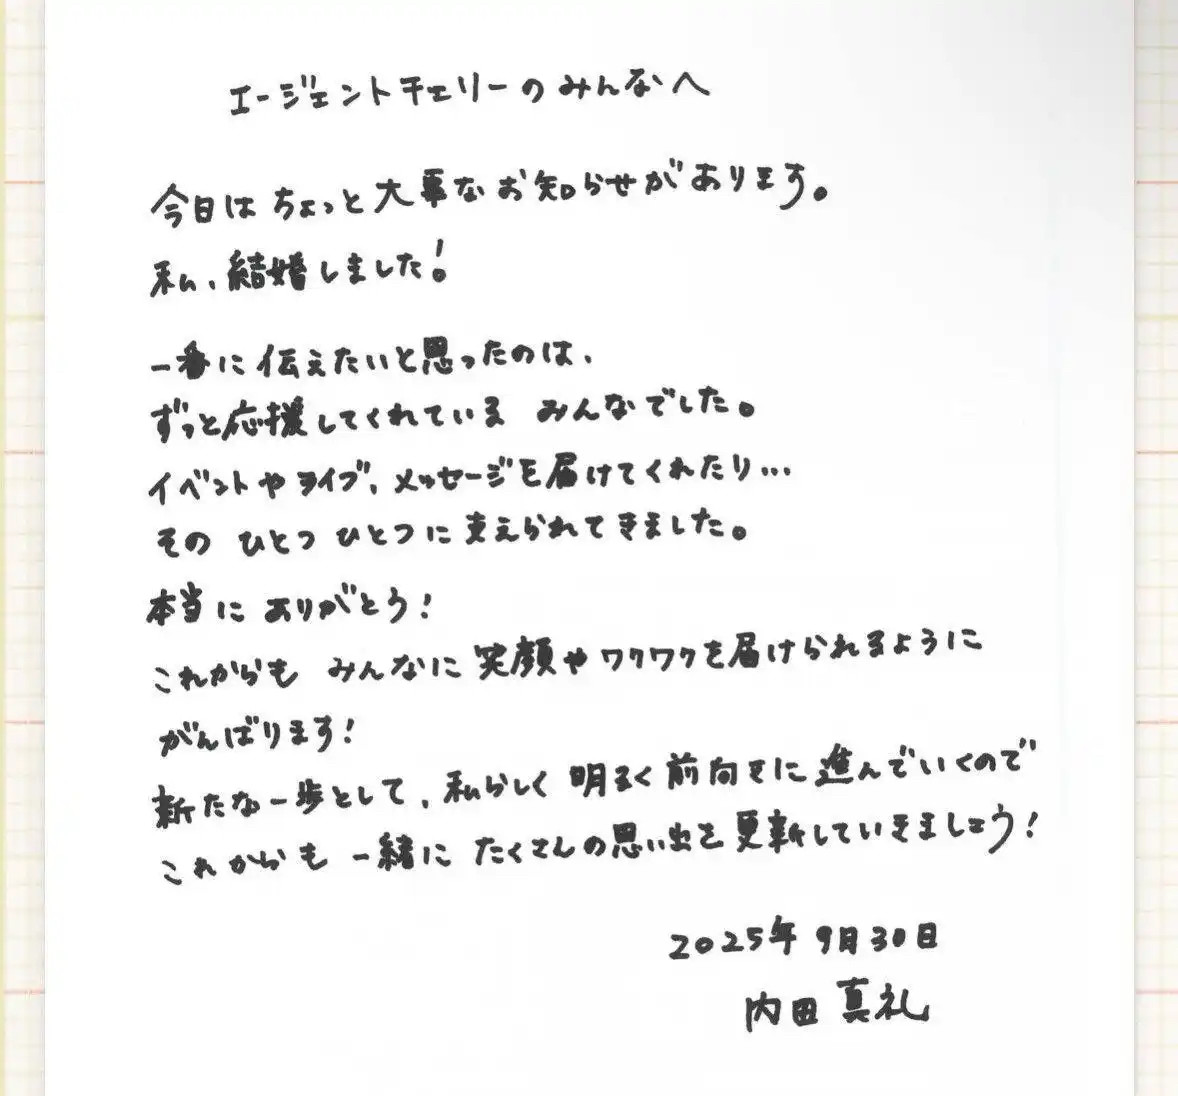 エージェントチェリーのみんなへ
今日はちょっと大事なお知らせがあります。
私、結婚しました！
一番に伝えたいと思ったのは、
ずっと応援してくれている みんなでした。
イベントやライブ、メッセージを届けてくれたり…
その ひとつ ひとつに支えられてきました。
本当に ありがとう！
これからも みんなに 笑顔や ワクワクを届けられるように
がんばります！
新たな一歩として、私らしく 明るく 前向きに 進んでいくので
これからも 一緒に たくさんの思い出を 更新していきましょう！
2025年 9月30日
内田 真礼